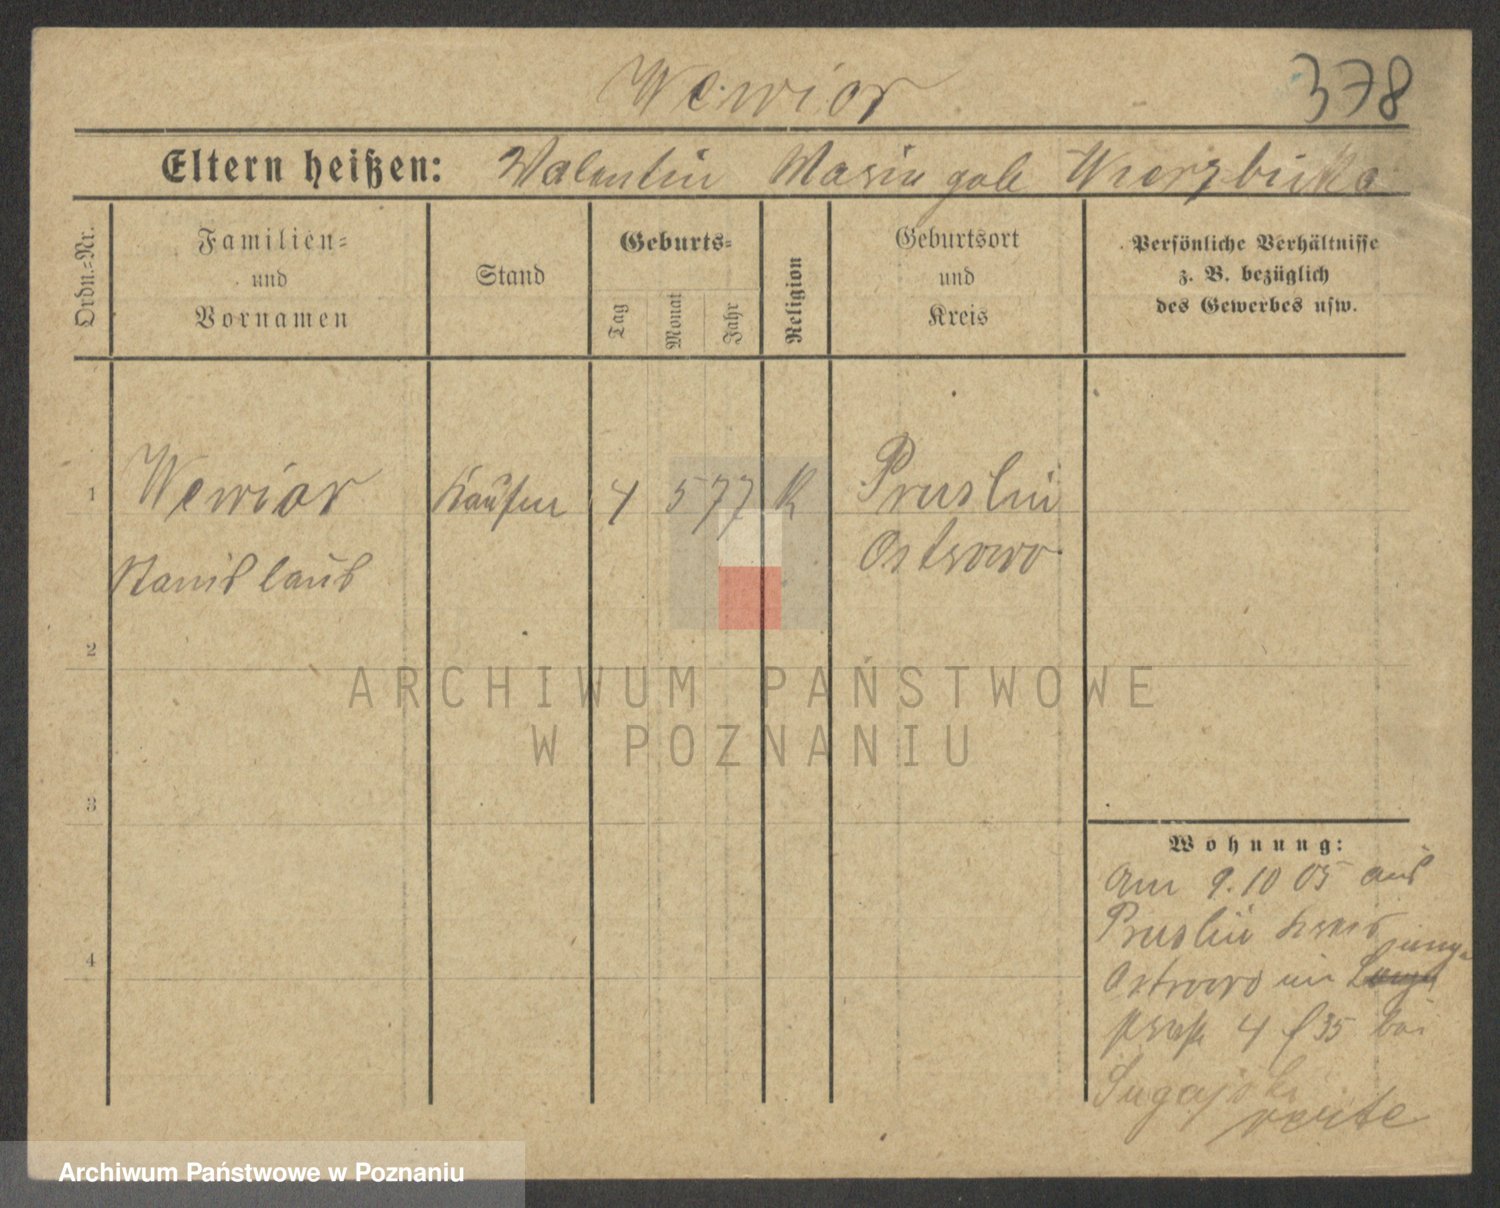 Wewior
378
Eltern heißen: Valentin Marin geb Wierzbicka
Ordn.=Nr.
Familien=
und
Vornamen
Stand
Geburts=
Tag
Monat
Jahr
Religion
Geburtsort
und
Kreis
Persönliche Verhältnisse
z. B. bezüglich
des Gewerbes usw.
1
Wewior
Stanislaus
4 5 77 K
Pruslin
Ostrowo
2
3
4
Wohnung:
Am 9. 10 05 aus
Pruslin Kreis
Ostrowo in
4 35 bei
ARCHIWUM PAŃSTWOWE
W POZNANIU
Archiwum Państwowe w Poznaniu